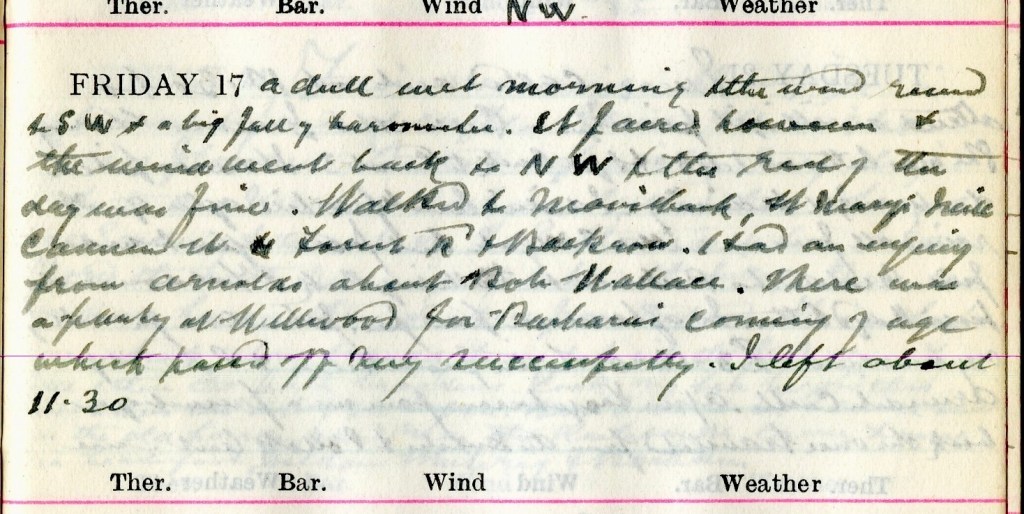 Ther. Bar. Wind NW Weather
FRIDAY 17 a dull wet morning & the wind round
to SW & a big fall of barometer. It faired however &
the wind went back to NW & the rest of the
day was fine. Walked to St Mary's
to Forest Rd & Backrow. I had an enquiry
from Arnolds about Bob Wallace. There was
a party at Wellwood for Barbara's coming of age
which passed off very successfully. I left about
11.30
Ther. Bar. Wind Weather